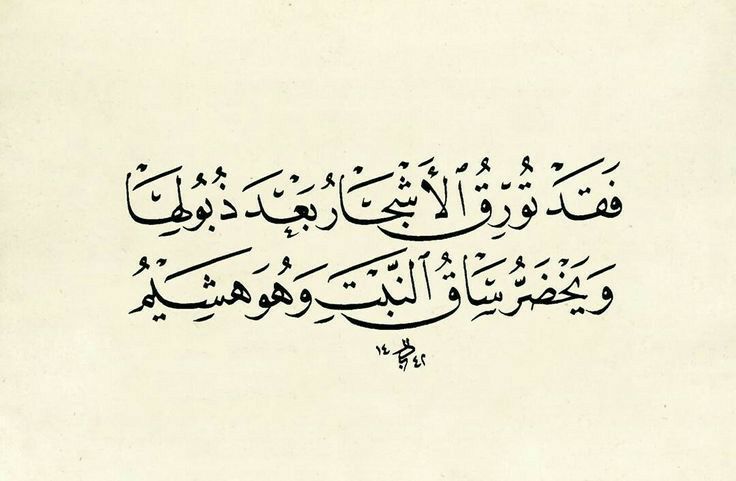 فَقَدْ تُوَرِّقُ ٱلْأَشْجَارُ بَعْدَ ذُبُولِهَا
وَيَخْضَرُّ سَاقُ ٱلنَّبْتِ وَهُوَ هَشِيْمُ
١٤٤٢